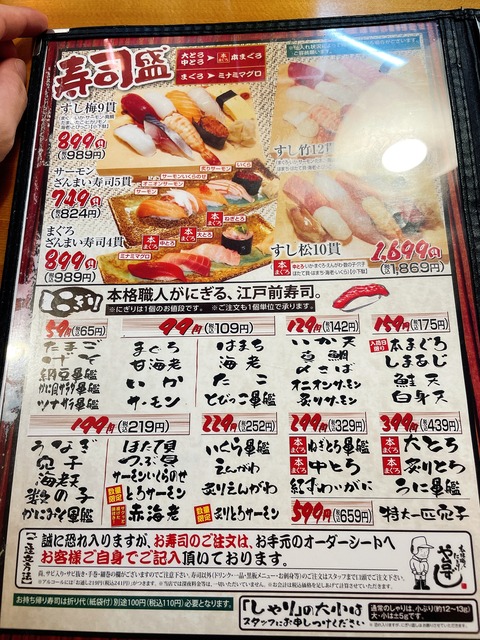 寿司盛
大とろ
中とろ
本まぐろ
まぐろ ▶ ミナミマグロ
すし梅9貫
899円
(税込989円)
サーモン
ざんまい寿司5貫
749円
(税込824円)
まぐろ
ざんまい寿司4貫
899円
(税込989円)
炙りサーモン
いくら
サーモンいくらのせ
オニオンサーモン
サーモン
本まぐろ
ねぎとろ
本まぐろ
大とろ
本まぐろ
中とろ
ミナミマグロ
すし竹12貫
すし松10貫
1,699円
(税込1,869円)
本格職人がにぎる、江戸前寿司。
※にぎりは1個のお値段です。 ※ご注文も1個単位で承ります。
59円(税込65円)
たまご
げそ
納豆軍艦
かに風サラダ軍艦
ツナサラダ軍艦
99円(税込109円)
まぐろ
甘海老
いか
サーモン
はまち
海老
たこ
とびっこ軍艦
129円(税込142円)
いか天
真鯛
〆さば
オニオンサーモン
炙りサーモン
159円(税込175円)
本まぐろ
しまあじ
鮭天
白身天
199円(税込219円)
うなぎ
穴子
海老天
数の子
かにみそ軍艦
ほたて貝
つぶ貝
サーモンいくらのせ
数量限定 とろサーモン
赤海老
229円(税込252円)
いくら軍艦
えんがわ
炙りえんがわ
299円(税込329円)
本まぐろ ねぎとろ軍艦
本まぐろ 中とろ
紅ずわいがに
399円(税込439円)
本まぐろ 大とろ
本まぐろ 炙りとろ
うに軍艦
数量限定 炙りとろサーモン
599円(税込659円)
特大一匹穴子
ご注文方法
誠に恐れ入りますが、お寿司のご注文は、お手元のオーダーシートへ
お客様ご自身でご記入頂いております。
お持ち帰り寿司は折り代(紙袋付)別途100円(税込110円)必要となります。
「しゃり」の大小は
スタッフにお申しつけください
通常のしゃりは、小ぶり(約12〜13g)
大・小は±5gです。
や台ずし